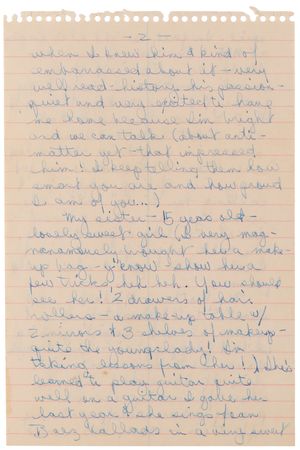 - 2 -
when I knew him & kind of
embarrassed about it - very
well read - history his passion -
quiet and very excited to have
me home because I'm bright
and we can talk (about anti-
matter yet - that impressed
him! I keep telling them how
smart you are and how proud
I am of you...)
My sister - 15 years old -
lovely sweet girl (I very mag-
nonamously brought her a make-
up bag - y'know - show her a
few tricks, heh heh. You should
see her! 2 drawers of hair
rollers - a make-up table w/
2 mirrors & 3 shelves of makeup -
quite the young lady! I'm
taking lessons from her!) She's
learned to play guitar quite
well on a guitar I gave her
last year & she sings Joan
Baez ballads in a very sweet